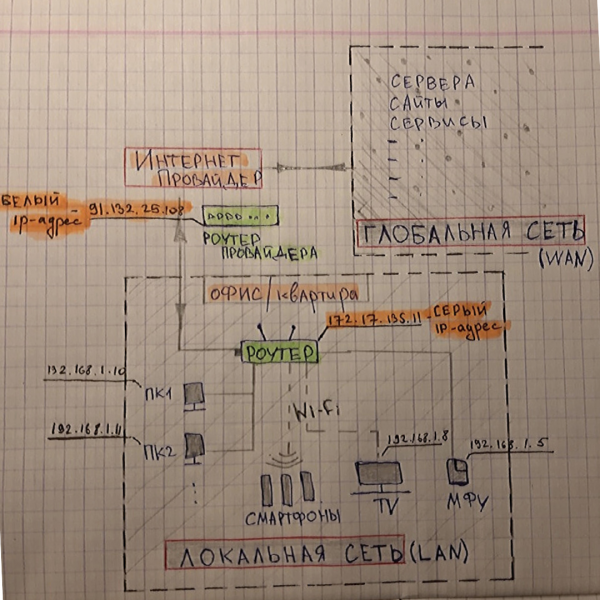 СЕРВЕРА
САЙТЫ
СЕРВИСЫ
ИНТЕРНЕТ
ПРОВАЙДЕР
БЕЛЫЙ
IP-адрес
91.132.25.108
РОУТЕР
ПРОВАЙДЕРА
ГЛОБАЛЬНАЯ СЕТЬ
(WAN)
ОФИС/квартира
172.17.135.11 - СЕРЫЙ
IP-адрес
РОУТЕР
192.168.1.10
ПК1
WI-FI
192.168.1.11
ПК2
192.168.1.8
192.168.1.5
СМАРТФОНЫ
TV
МФУ
ЛОКАЛЬНАЯ СЕТЬ (LAN)